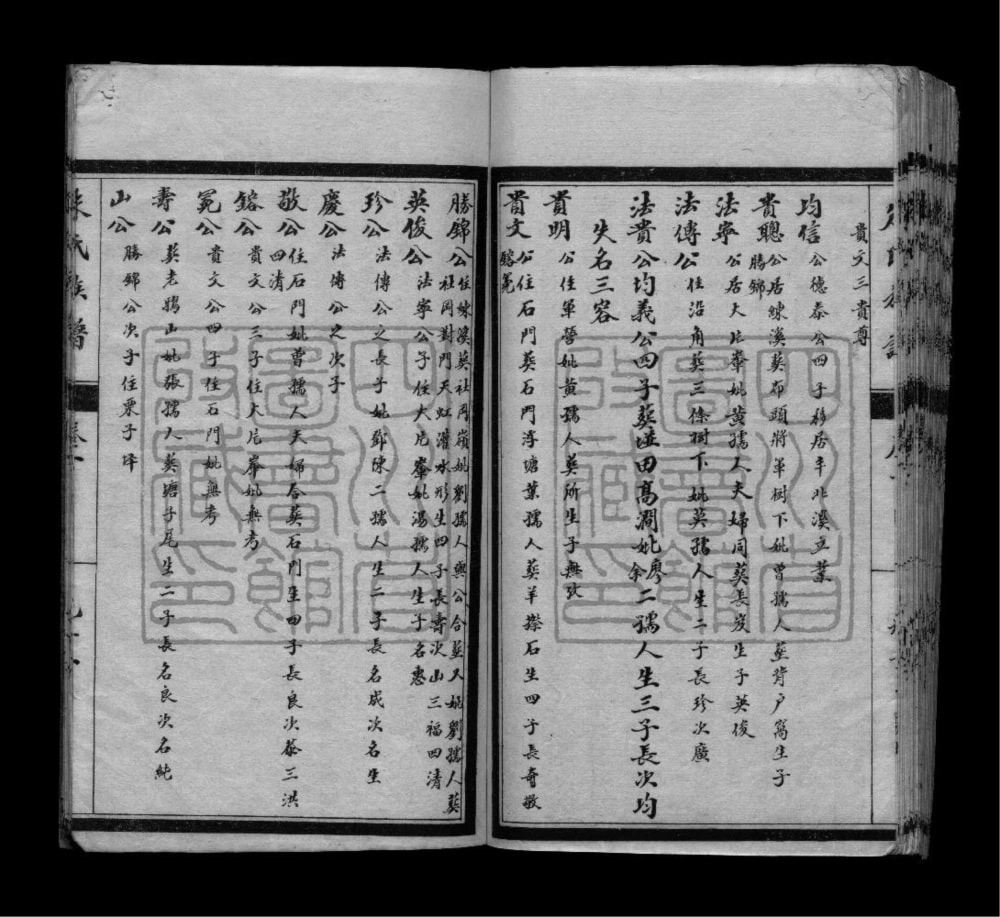 貴文三貴尊
均信公德泰公四子移居平北溪立業
貴聰公居竦溪葬布頭將軍樹下妣曾孺人葬背戶窩生子
勝錦
法寧公居大片峯妣黃孺人夫婦同葬長岌生子英俊
法傳公住沿角葬三條树下妣莫孺人生二子長珍次廣
法貴公均義公四子葬塘田高澗妣廖余二孺人生三子長次均
失名三容
貴明公住軍營妣黃孺人葬所生子無攷
貴文公住石門葬石門浮塘葉孺人葬羊石生四子長奇敬
鎔冕
勝錦公住竦溪葬社冈嶺妣劉孺人與公合葬又妣劉孺人葬
社冈對門天虹濳水形生四子長壽次山三福四清
英俊公法寧公子住大片峯妣湯孺人生子名惠
珍公法傳公之長子妣鄧陳二孺人生二子長名成次名生
慶公法傳公之次子
敬公住石門妣曾孺人夫婦合葬石門生四子長良次恭三洪
四清
鎔公貴文公三子住大片峯妣無考
冕公貴文公四子住石門妣無考
壽公葬老鴉山妣張孺人葬塘子尾生二子長名良次名純
山公勝錦公次子住栗子坪
氏族譜
四川省圖書館
收藏印
四川省圖書館
收藏印